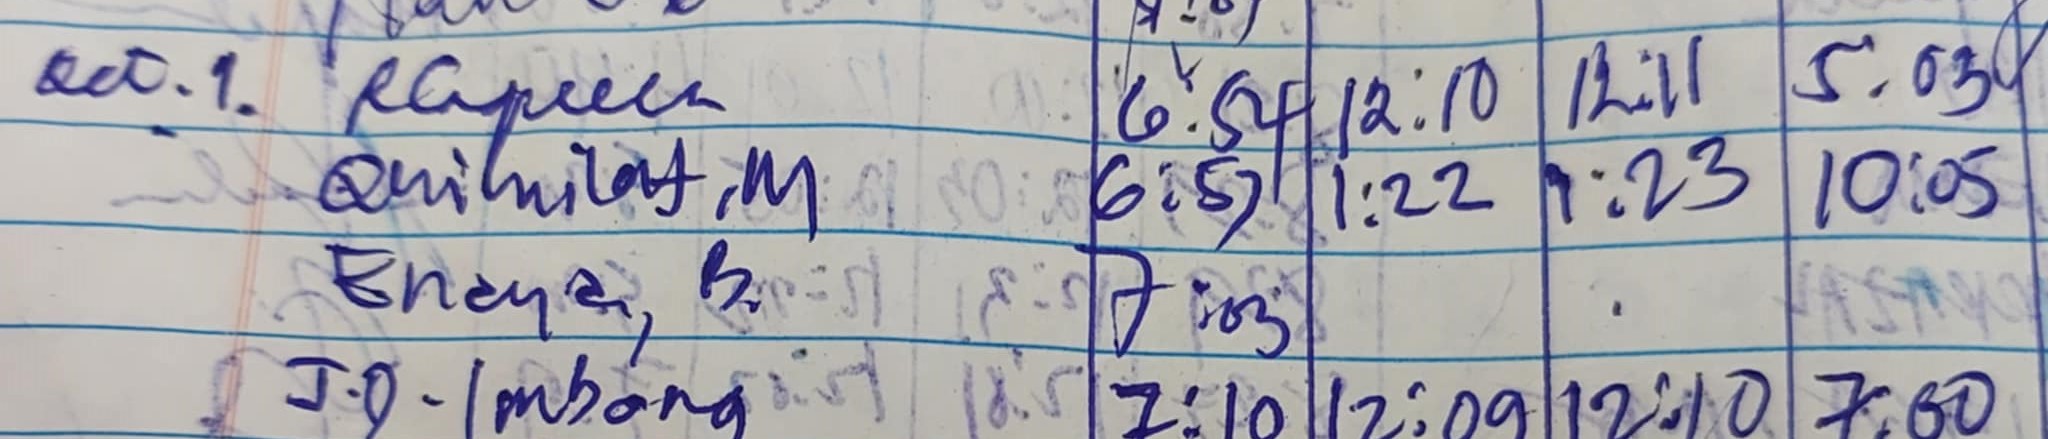 Oct. 1. 6:54 12:10 12:11 5:03
Quimilat, M 6:57 1:22 1:23 10:05
Enaya, B. 7:03
J.O. Imbang 7:10 12:09 12:10 7:00